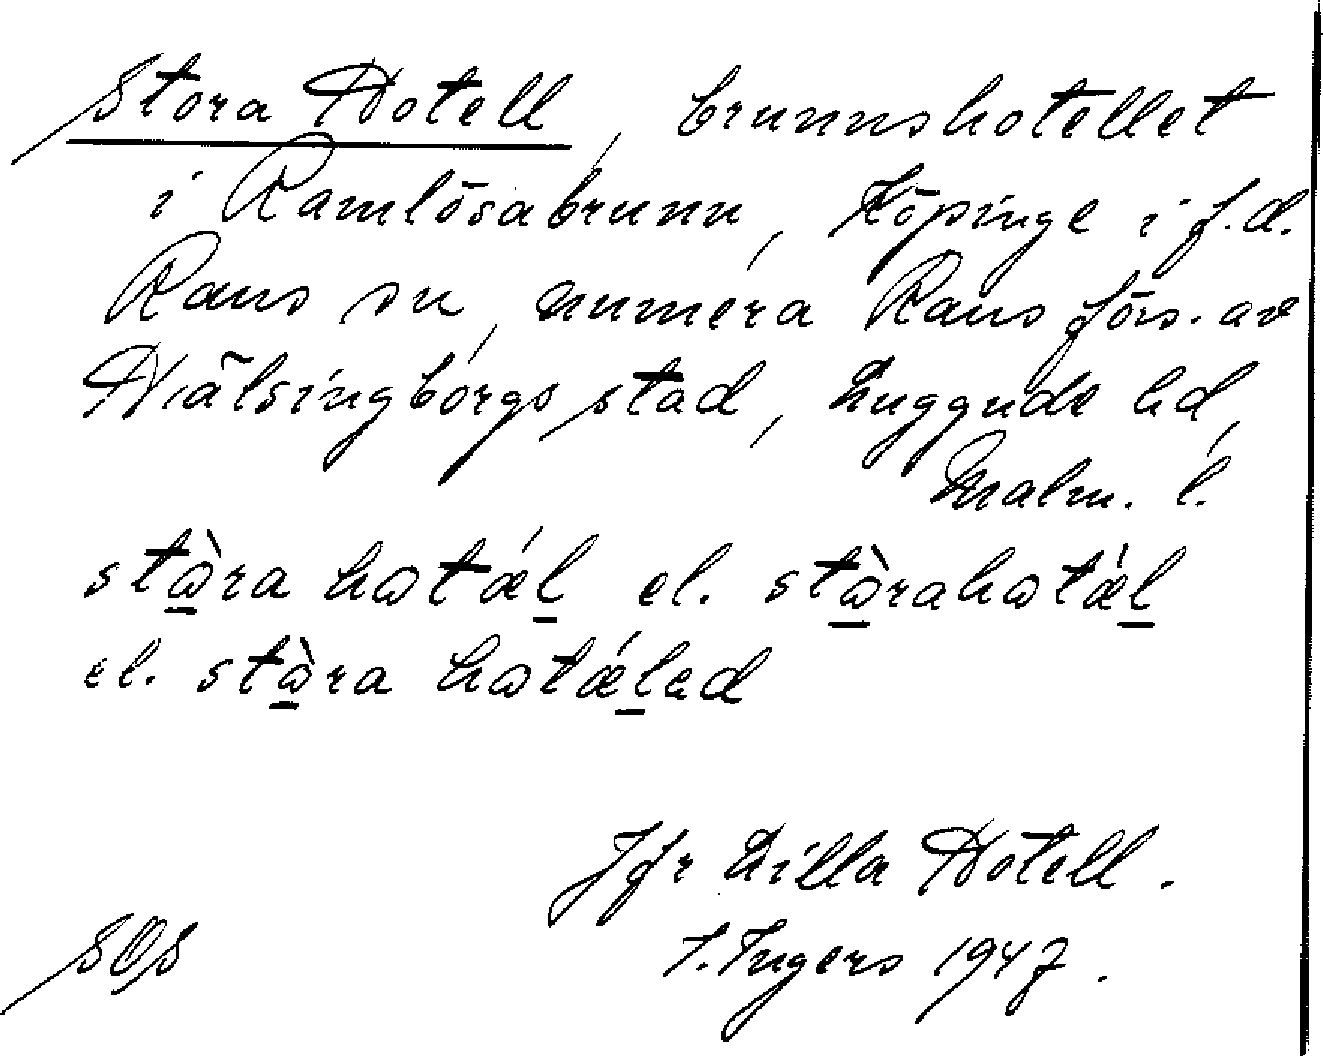 Stora Hotell, brunnshotellet
i Ramlösabrunn, Köpinge i f.d.
Raus sn, numera Raus förs. av
Hälsingborgs stad, Luggude hd,
Malm. l.
stɷ̀ra hɷtǽl el. stɷ̀rahɷtǽl
el. stɷ̀ra hɷtǽled
Jfr Lilla Hotell.
I. Ingers 1947.
SOS